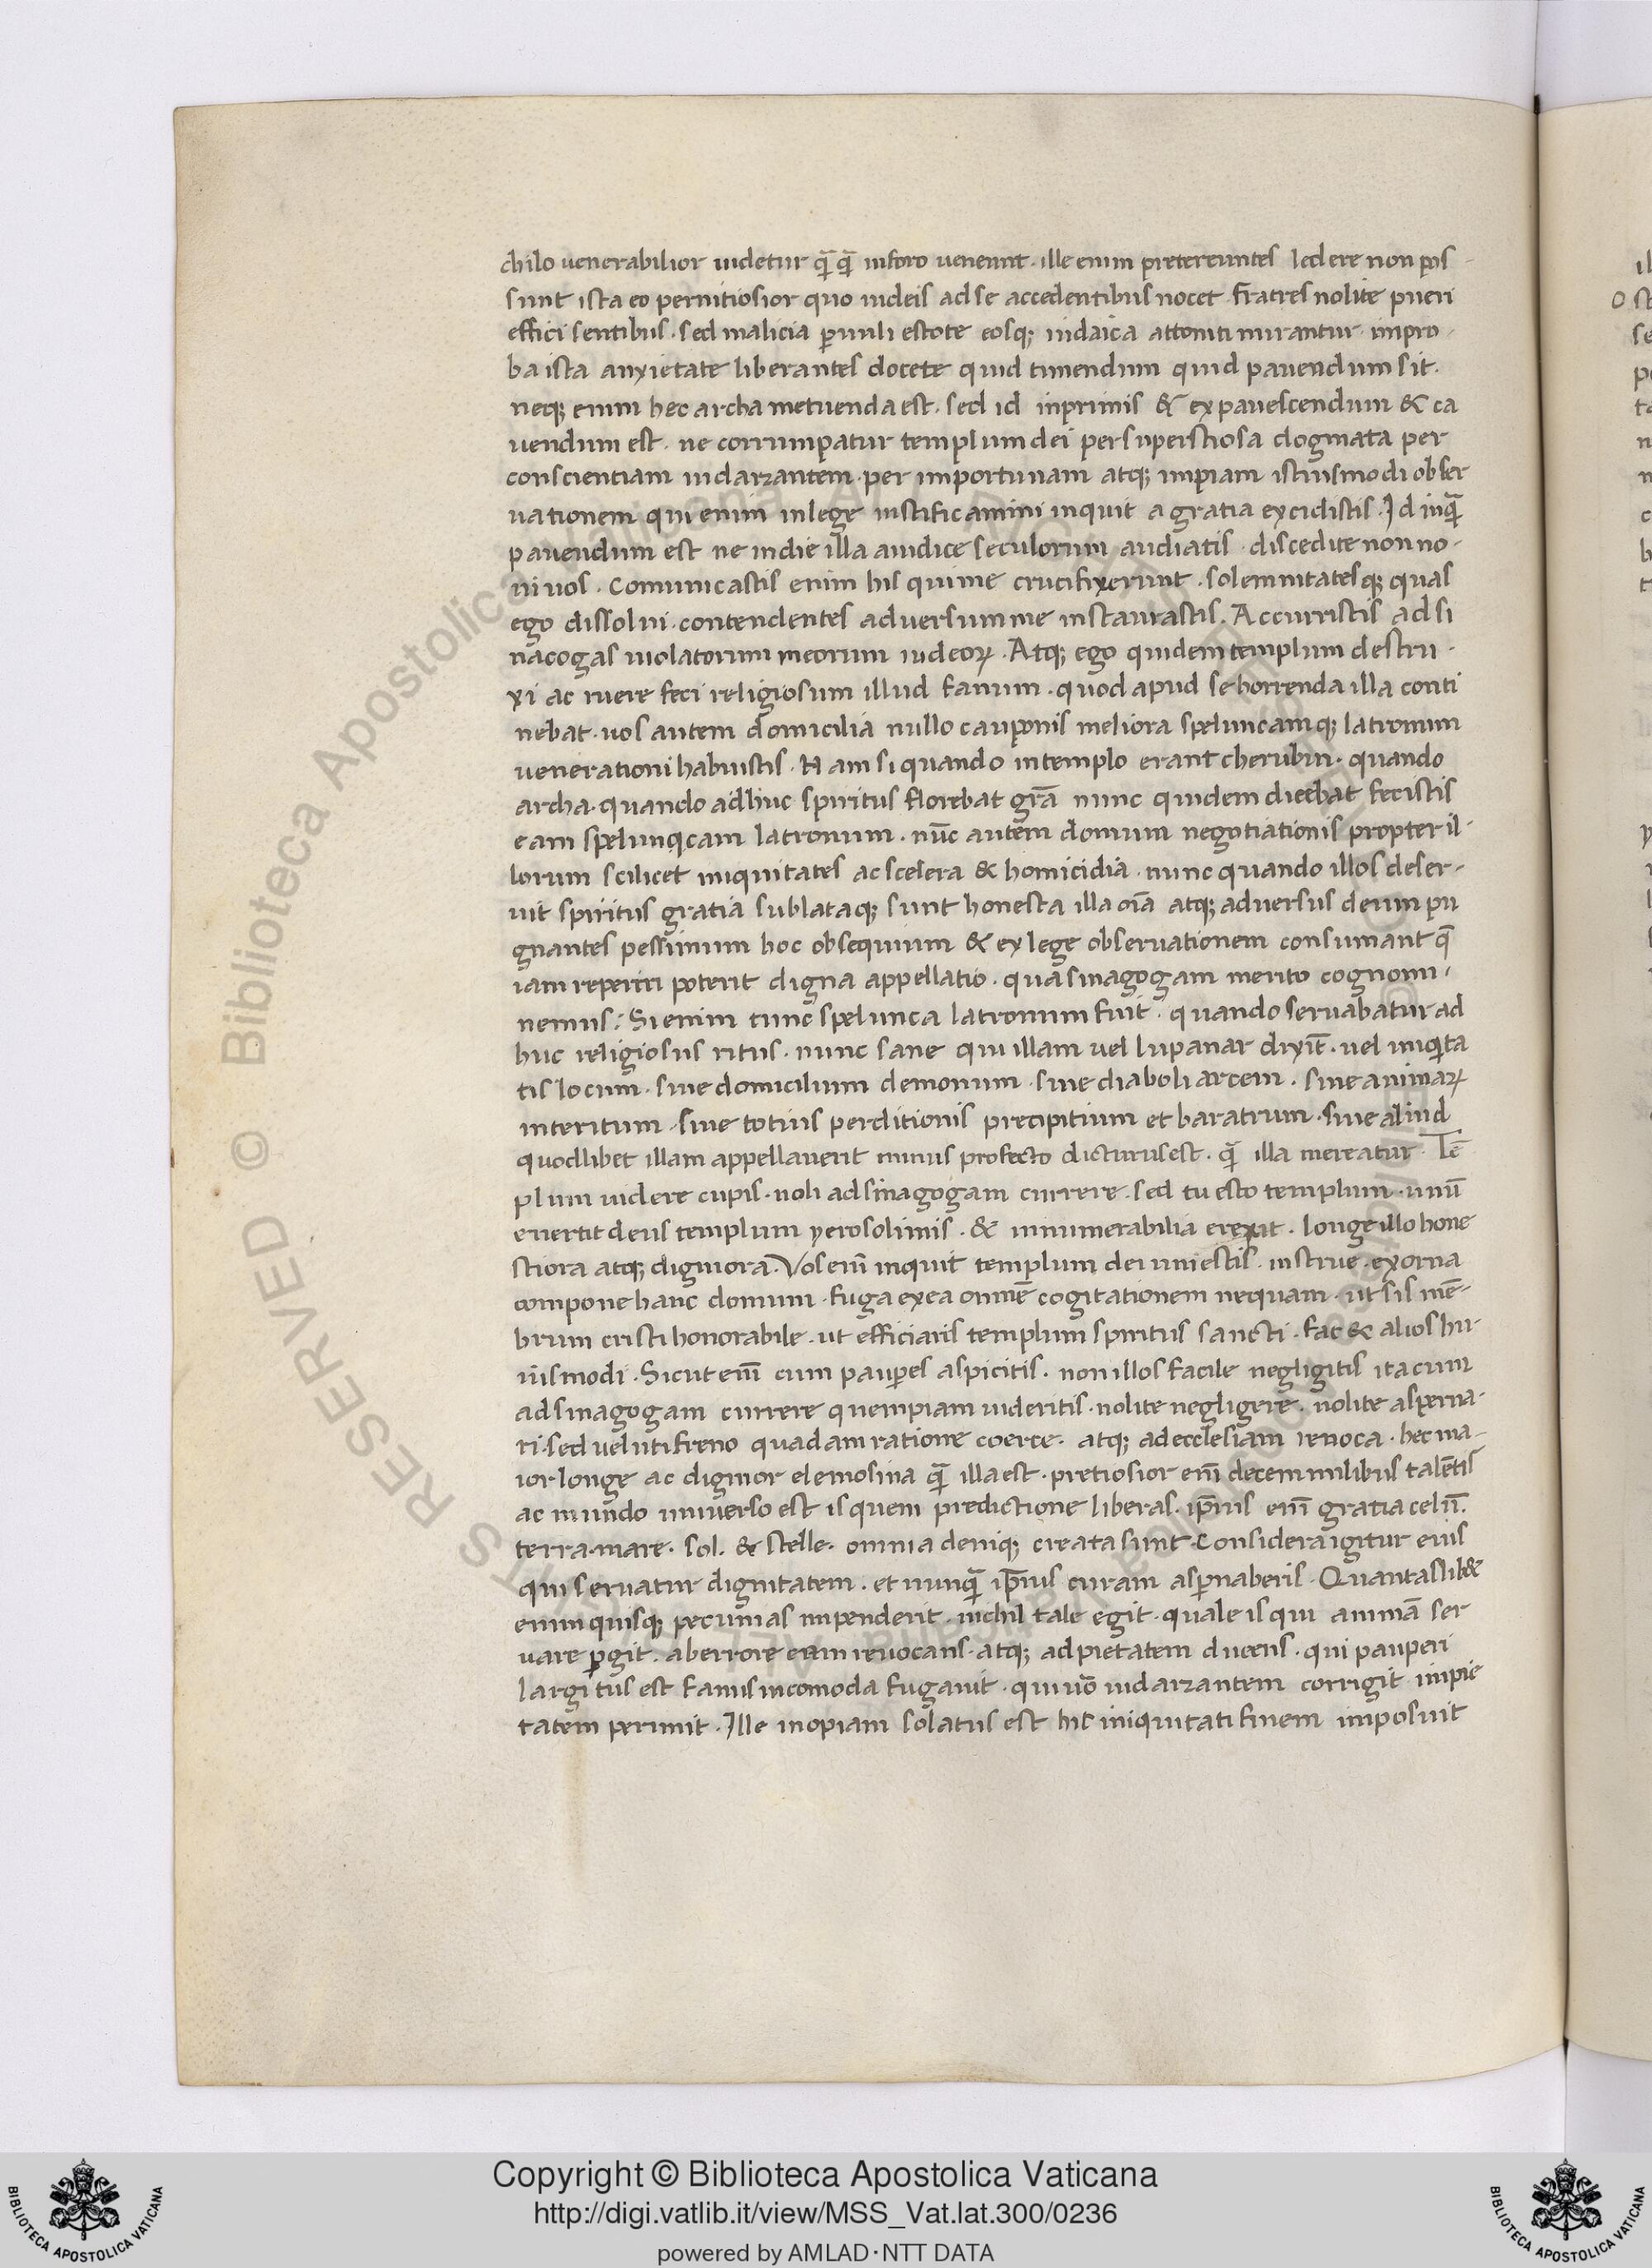 chilo venerabilior uidetur qua̅ qua̅ in foro veneunt. ille enim pretereuntes ledere non pos-
sunt ista eo pernitiosior quo iudeis ad se accedentibus nocet. fratres nolite pueri
effici sensibus. sed malicia paruuli estote eosq; iudaica attoniti mirantur. impro-
ba ista anxietate liberantes docete quid timendum quid pauendum sit.
neq; enim hec archa metuenda est. sed id inprimis & expauescendum & ca
uendum est. ne corrumpatur templum dei per superstiosa dogmata per
conscientiam iudaizantem. per importunam atq; impiam istiusmodi obser
uationem qui enim in lege iustificamini inquit a gratia excidistis. Id inqua̅
pauendum est ne in die illa a iudice seculorum audiatis. discedite non no-
ui uos. Comunicastis enim his qui me crucifixerunt. solemnitatesq; quas
ego dissolui. contendentes aduersum me instaurastis. Accurristis ad si
nacogas uiolatorum meorum iudeoꝝ. Atq; ego quidem templum destru-
xi ac ruere feci religiosum illud fanum. quod apud se horrenda illa conti
nebat. uos autem domicilia nullo cauponis meliora speluncamq; latronum
uenerationi habuistis. Nam si quando in templo erant cherubin. quando
archa. quando adhuc spiritus florebat gra̅ nunc quidem dicebat fecistis
eam spelunqcam latronum. nu̅c autem domum negotiationis propter il-
lorum scilicet iniquitates ac scelera & homicidia. nunc quando illos deser-
uit spiritus gratia sublataq; sunt honesta illa oi̅a atq; aduersus deum pu
gnantes pessimum hoc obsequium & ex lege obseruationem consumant que̅
iam reperiri poterit digna appellatio. qua sinagogam merito cognomi-
nemus: Si enim tunc spelunca latronum fuit. quando seruabatur ad
huc religiosus ritus. nunc sane qui illam uel lupanar dixit̅. uel iniquita
tis locum. siue domicilium demonum. siue diaboli arcem. siue animaꝝ
interitum. siue totius perditionis precipitium et baratrum. siue aliud
quodlibet illam appellauerit minus profecto dicturus est. qua̅ illa mereatur. Te̅
plum uidere cupis. noli ad sinagogam currere. sed tu esto templum. unu̅
euertit deus templum yerosolimis. & innumerabilia erexit. longe illo hone
stiora atq; digniora. Vos eni̅ inquit templum dei uiui estis. instrue. exorna
compone hanc domum. fuga ex ea omne̅ cogitationem nequam. ut sis me̅-
brum cristi honorabile. ut efficiaris templum spiritus sancti. fac & alios hu-
iusmodi. Sicut eni̅ cum paupes̅ aspicitis. non illos facile negligitis ita cum
ad sinagogam currere quempiam uideritis. nolite negligere. nolite asperna-
ri. sed ueluti freno quadam ratione coerce. atq; ad ecclesiam reuoca. hec ma-
ior longe ac dignior elemosina qua̅ illa est. pretiosior eni̅ decem milibus tale̅tis
ac mundo uniuerso est is quem predictione liberas. ip̅ius eni̅ gratia celu̅.
terra. mare. sol. & stelle. omnia deniq; creata sunt. Considera igitur eius
qui seruatur dignitatem. et nunqua̅ ip̅ius curam asp̅naberis. Quantaslib&
enim quisq; pecunias impenderit. nichil tale egit. quale is qui anima̅ ser
uare p̅git. ab errore eam reuocans. atq; ad pietatem ducens. qui pauperi
largitus est famis incomoda fugauit. qui uo̅ iudaizantem corrigit impie
tatem perimit. Ille inopiam solatus est hic iniquitati finem imposuit
Copyright © Biblioteca Apostolica Vaticana
http://digi.vatlib.it/view/MSS_Vat.lat.300/0236
powered by AMLAD·NTT DATA